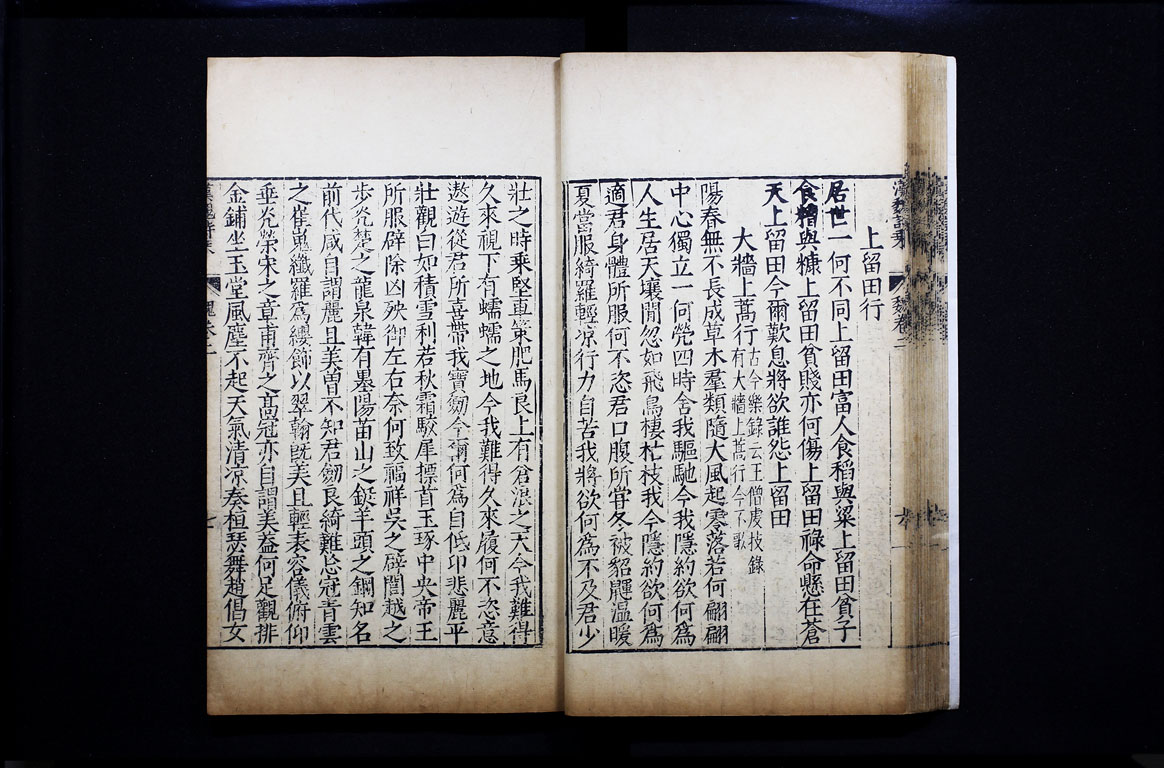 上留田行
居世一何不同上留田富人食稻與粱上留田貧子
食糟與糠上留田貧賤亦何傷上留田祿命懸在蒼
天上留田今爾歎息將欲誰怨上留田
大牆上蒿行古今樂錄云王僧虔技錄
有大牆上蒿行今不歌
陽春無不長成草木羣類隨大風起零落若何翩翩
中心獨立一何煢四時舍我驅馳今我隱約欲何為
人生居天壤閒忽如飛鳥棲枯枝我今隱約欲何為
適君身體所服何不恣君口腹所嘗冬被貂鼲溫暖
夏當服綺羅輕凉行力自苦我將欲何為不及君少
壯之時乘堅車策肥馬良上有倉浪之天今我難得
久來視下有蠕蠕之地今我難得久來履何不恣意
遨遊從君所喜帶我寶劒今爾何為自低卬悲麗平
壯觀白如積雪利若秋霜駮犀摽首玉琢中央帝王
所服辟除凶殃御左右奈何致福祥吳之辟閭越之
步光楚之龍泉韓有墨陽苗山之鋌羊頭之鋼知名
前代咸自謂麗且美曽不知君劒良綺難忘冠青雲
之崔嵬纖羅為纓飾以翠翰旣美且輕表容儀俯仰
垂光榮宋之章甫齊之高冠亦自謂美葢何足觀排
金鋪坐玉堂風塵不起天氣清凉奏桓瑟舞趙倡女